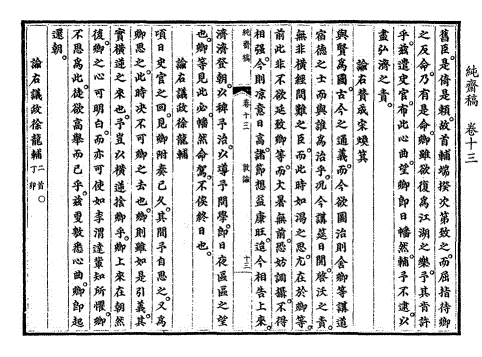 純齋稿 卷十三
舊臣是倚是賴故首輔端揆次第致之而屈指待卿
之反命乃有是命卿雖欲復爲江湖之樂乎其肯許
乎玆遣史官布此心曲望卿卽日幡然輔予不逮以
盡弘濟之責
諭右贊成宋煥箕
與賢爲國古今之通義而今欲圖治則舍卿等講道
宿德之士而與誰爲治乎況今講筵日開啓沃之責
無非橫經問難之臣而此時如渴之思尤在於卿等
前此非不欲延致卿等而大暑無前恐妨調攝不得
相强今則凉意日高諸節想益康旺玆今相告上來
純齋稿 卷十三 敦諭 十三
濟濟登朝以裨予治以導予問學卽日夜區區之望
也卿等見此必幡然命駕不俟終日也
諭右議政徐龍輔
項日史官之回見卿附奏已久其間乎自思之又爲
卿思之此時決不可卿之去也卿則雖如是引義其
實橫逆之來也予豈以橫逆捨卿乎卿上來在朝然
後卿之心可明白而亦可使如李渭達輩知所懼卿
不思爲此徒欲高擧而已乎玆更敦悉心曲卿卽起
還朝
諭右議政徐龍輔 二首○丁卯